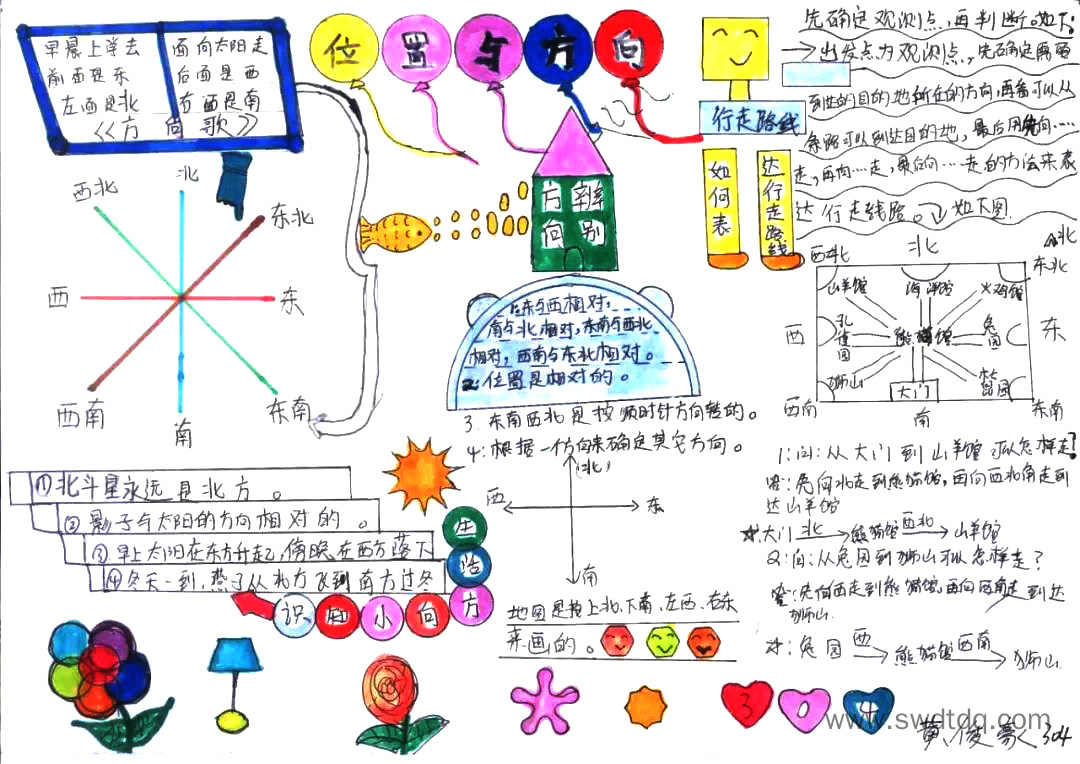 位置与方向
早晨上学去
前面是东
左面是北
面向太阳走
后面是西
右面是南
《方向歌》
北
西北
东北
西
东
西南
东南
南
辨别方向
1:东与西相对,
南与北相对,东南与西北
相对,西南与东北相对。
2:位置是相对的。
3.东南西北是按顺时针方向转的。
4:根据一个方向来确定其它方向。
(北)
西
东
南
地图是按上北、下南、左西、右东
来画的。
①北斗星永远是北方。
②影子与太阳的方向相对的。
③早上太阳在东方升起,傍晚在西方落下
④冬天一到,燕子从北方飞到南方过冬
生活
方向小知识
行走路线
如何表
达行走路线
先确定观测点,再判断。如下:
→出发点为观测点,先确定需要
到达的目的地所在的方向,再看可以从
条路可以到达目的地,最后用先向……
走,再向…走,最后向…走的方法来表
达行走线路。如下图
北
西北
北
东北
山羊馆
海洋馆
火鸡馆
西
孔雀园
熊猫馆
兔园
东
狮山
大门
松鼠园
西南
南
东南
1:问:从大门到山羊馆可以怎样走?
答:先向北走到熊猫馆,再向西北角走到
达山羊馆
大门 北→ 熊猫馆 西北→ 山羊馆
2:问:从兔园到狮山可以怎样走?
答:先向西走到熊猫馆,再向西南走到达
狮山.
对:兔园 西→ 熊猫馆 西南→ 狮山
304
www.swdtdq.com
黄俊豪 304